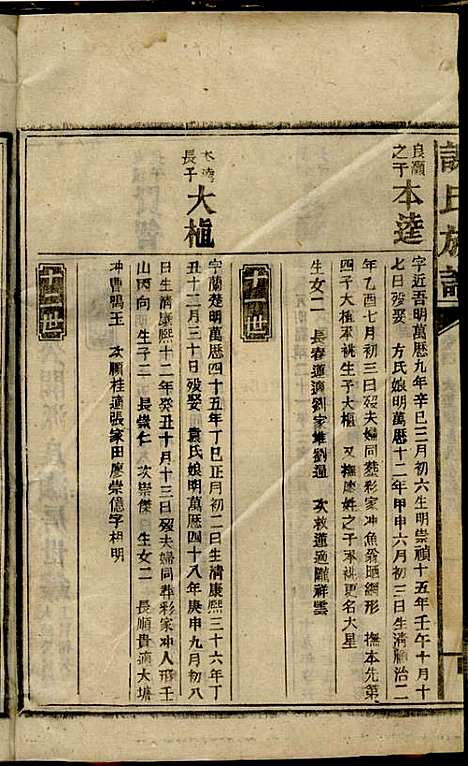 譚氏族譜
良灝
之子
本達
字近吾明萬曆九年辛巳三月初六生明崇禎十五年壬午十月十
七日歿娶 方氏娘明萬曆十二年甲申六月初三日生清順治二
年乙酉七月初三日歿夫婦同葬彩家冲魚翁晒網形 撫本先第
四子大植承祧生子大樞 又撫廖姓之子承祧更名大星
生女二 長春蓮適劉家堆劉適 次救蓮適隴祥雲
十二世
本灣
長子
大植
字蘭楚明萬曆四十五年丁巳正月初二日生清康熙三十六年丁
丑十二月三十日歿娶 袁氏娘明萬曆四十八年庚申九月初八
日生清康熙十二年癸丑十月十三日歿夫婦同葬彩家冲人形壬
山丙向 生子二 長崇仁 次崇傑 生女二 長順貴適大塘
冲曹鴨王 次順桂適張家田廖崇億字相明
十三世